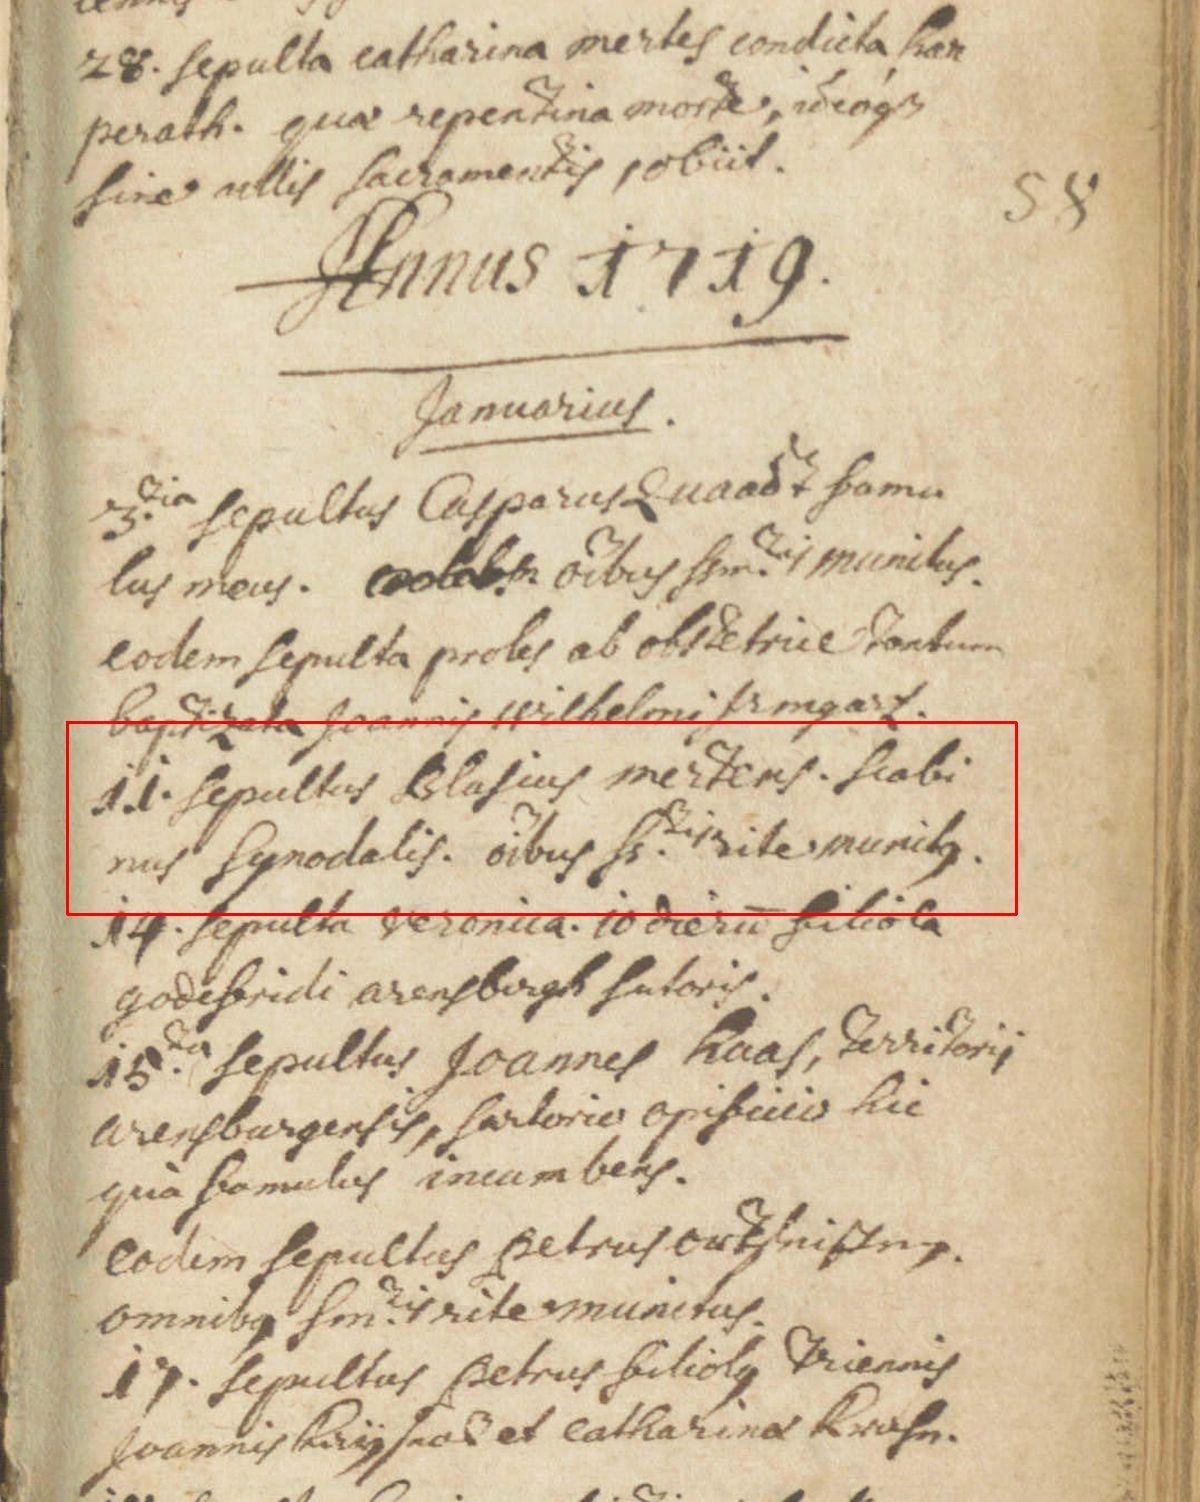 28. sepulta catharina mertes condicta han
perath. quæ repentina morte, ideoq3
sine ullis sacramentis, obiit.
58
Annus 1719.
Januarius.
3.tia sepultus Casparus Quaadt famu
lus meus. oibus ssm.tis munitus.
eodem sepulta proles ab obstetrice tantum
baptizata Joannis Wilhelmi Irmgartz.
11. sepultus Blasius mertens. scabi
nus synodalis. oibus ss.tis rite munitq.
14. sepulta veronica. 10 dierū filiola
godefridi arensburgh sutoris.
15.ta sepultus Joannes haas, territorij
arensburgensis, sartorio opificio hic
quà famulus incumbens.
eodem sepultus petrus
omnibq sm.tis rite munitus.
17. sepultus petrus filiolq triennis
Joannis et catharina